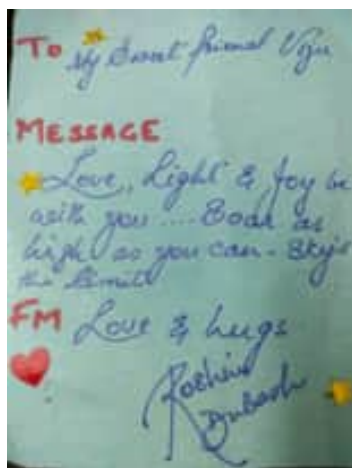 To My Sweet friend Viju
MESSAGE
Love, Light & Joy be
with you .... Soar as
high as you can - Sky's
the limit
FM Love & hugs